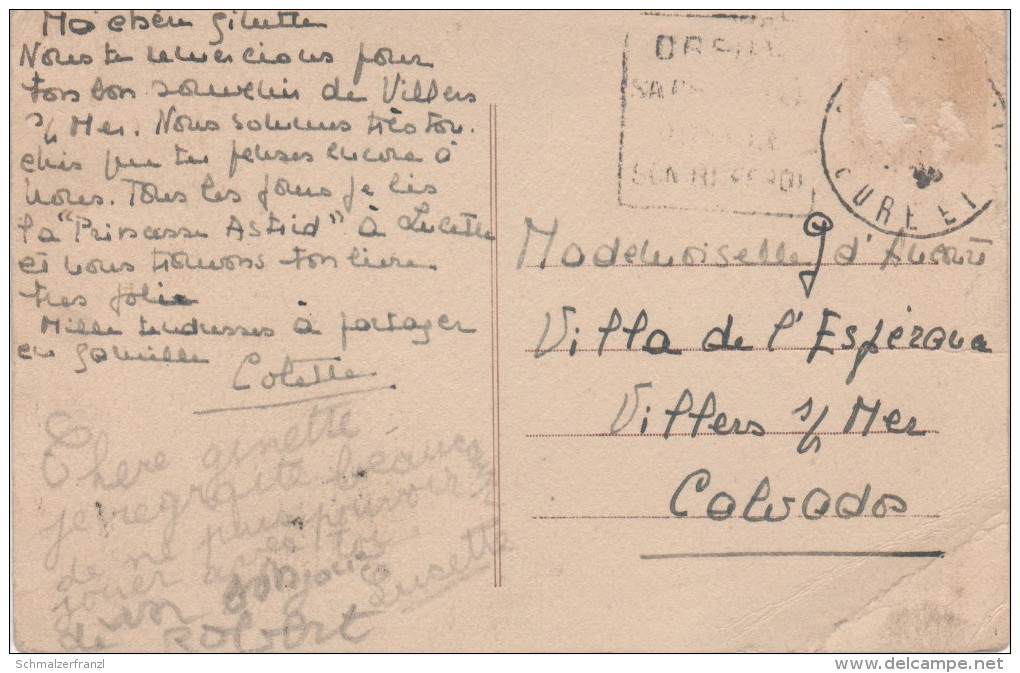 Ma chère Ginette
Nous te remercions pour
ton bon souvenir de Villers
s/ Mer. Nous sommes très tou-
chés que tu penses encore à
nous. Tous les jours je lis
la "Princesse Astrid" à Lucette
et nous trouvons ton livre
très jolie
Mille tendresses à partager
en famille
Colette
Chère ginette
je regraite beaucou
de ne plus pouvoir
jouer avec toi
Lusette
un bonjour
de Robert
SEN
EURE ET
Mademoiselle d'
Villa de l'Espérance
Villers s/ Mer
Calvados
Schmalzerfranzl
delcampe.net